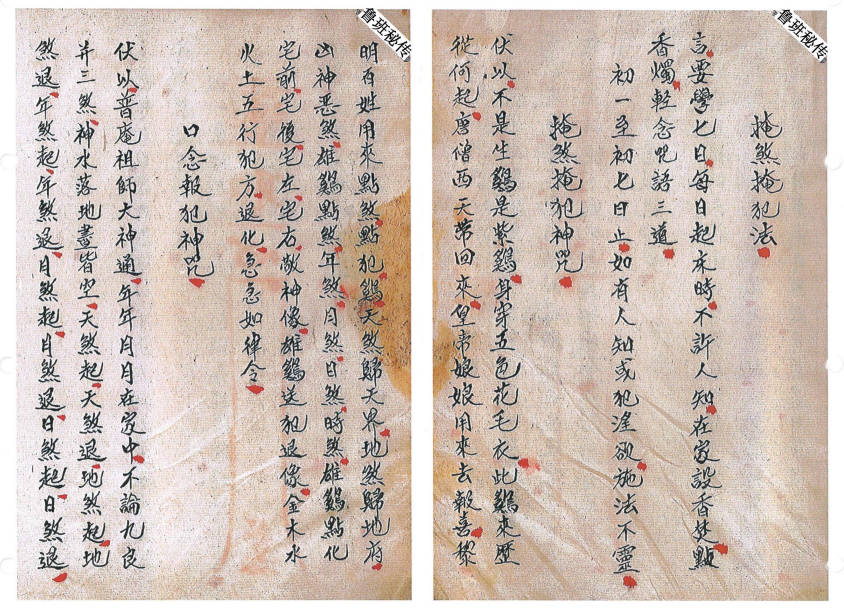 鲁班秘传
掩煞掩犯法
言要學七日每日起床時不許人知在家設香焚點
香燭輕念咒語三道
初一至初七日止如有人知或犯淫欲施法不靈
掩煞掩犯神咒
伏以不是生鷄是紫鷄身穿五色花毛衣此鷄來歷
從何起唐僧西天帶回來皇帝娘娘用來去報喜黎
鲁班秘传
明百姓用來點煞點犯鷄天煞歸天界地煞歸地府
凶神惡煞雄鷄點煞年煞月煞日煞時煞雄鷄點化
宅前宅後宅左宅右敵神像雄鷄送犯退像金木水
火土五行犯方退化急急如律令
口念報犯神咒
伏以普庵祖師大神通年年月月在家中不論九良
并三煞神水落地盡皆空天煞起天煞退地煞起地
煞退年煞起年煞退月煞起月煞退日煞起日煞退